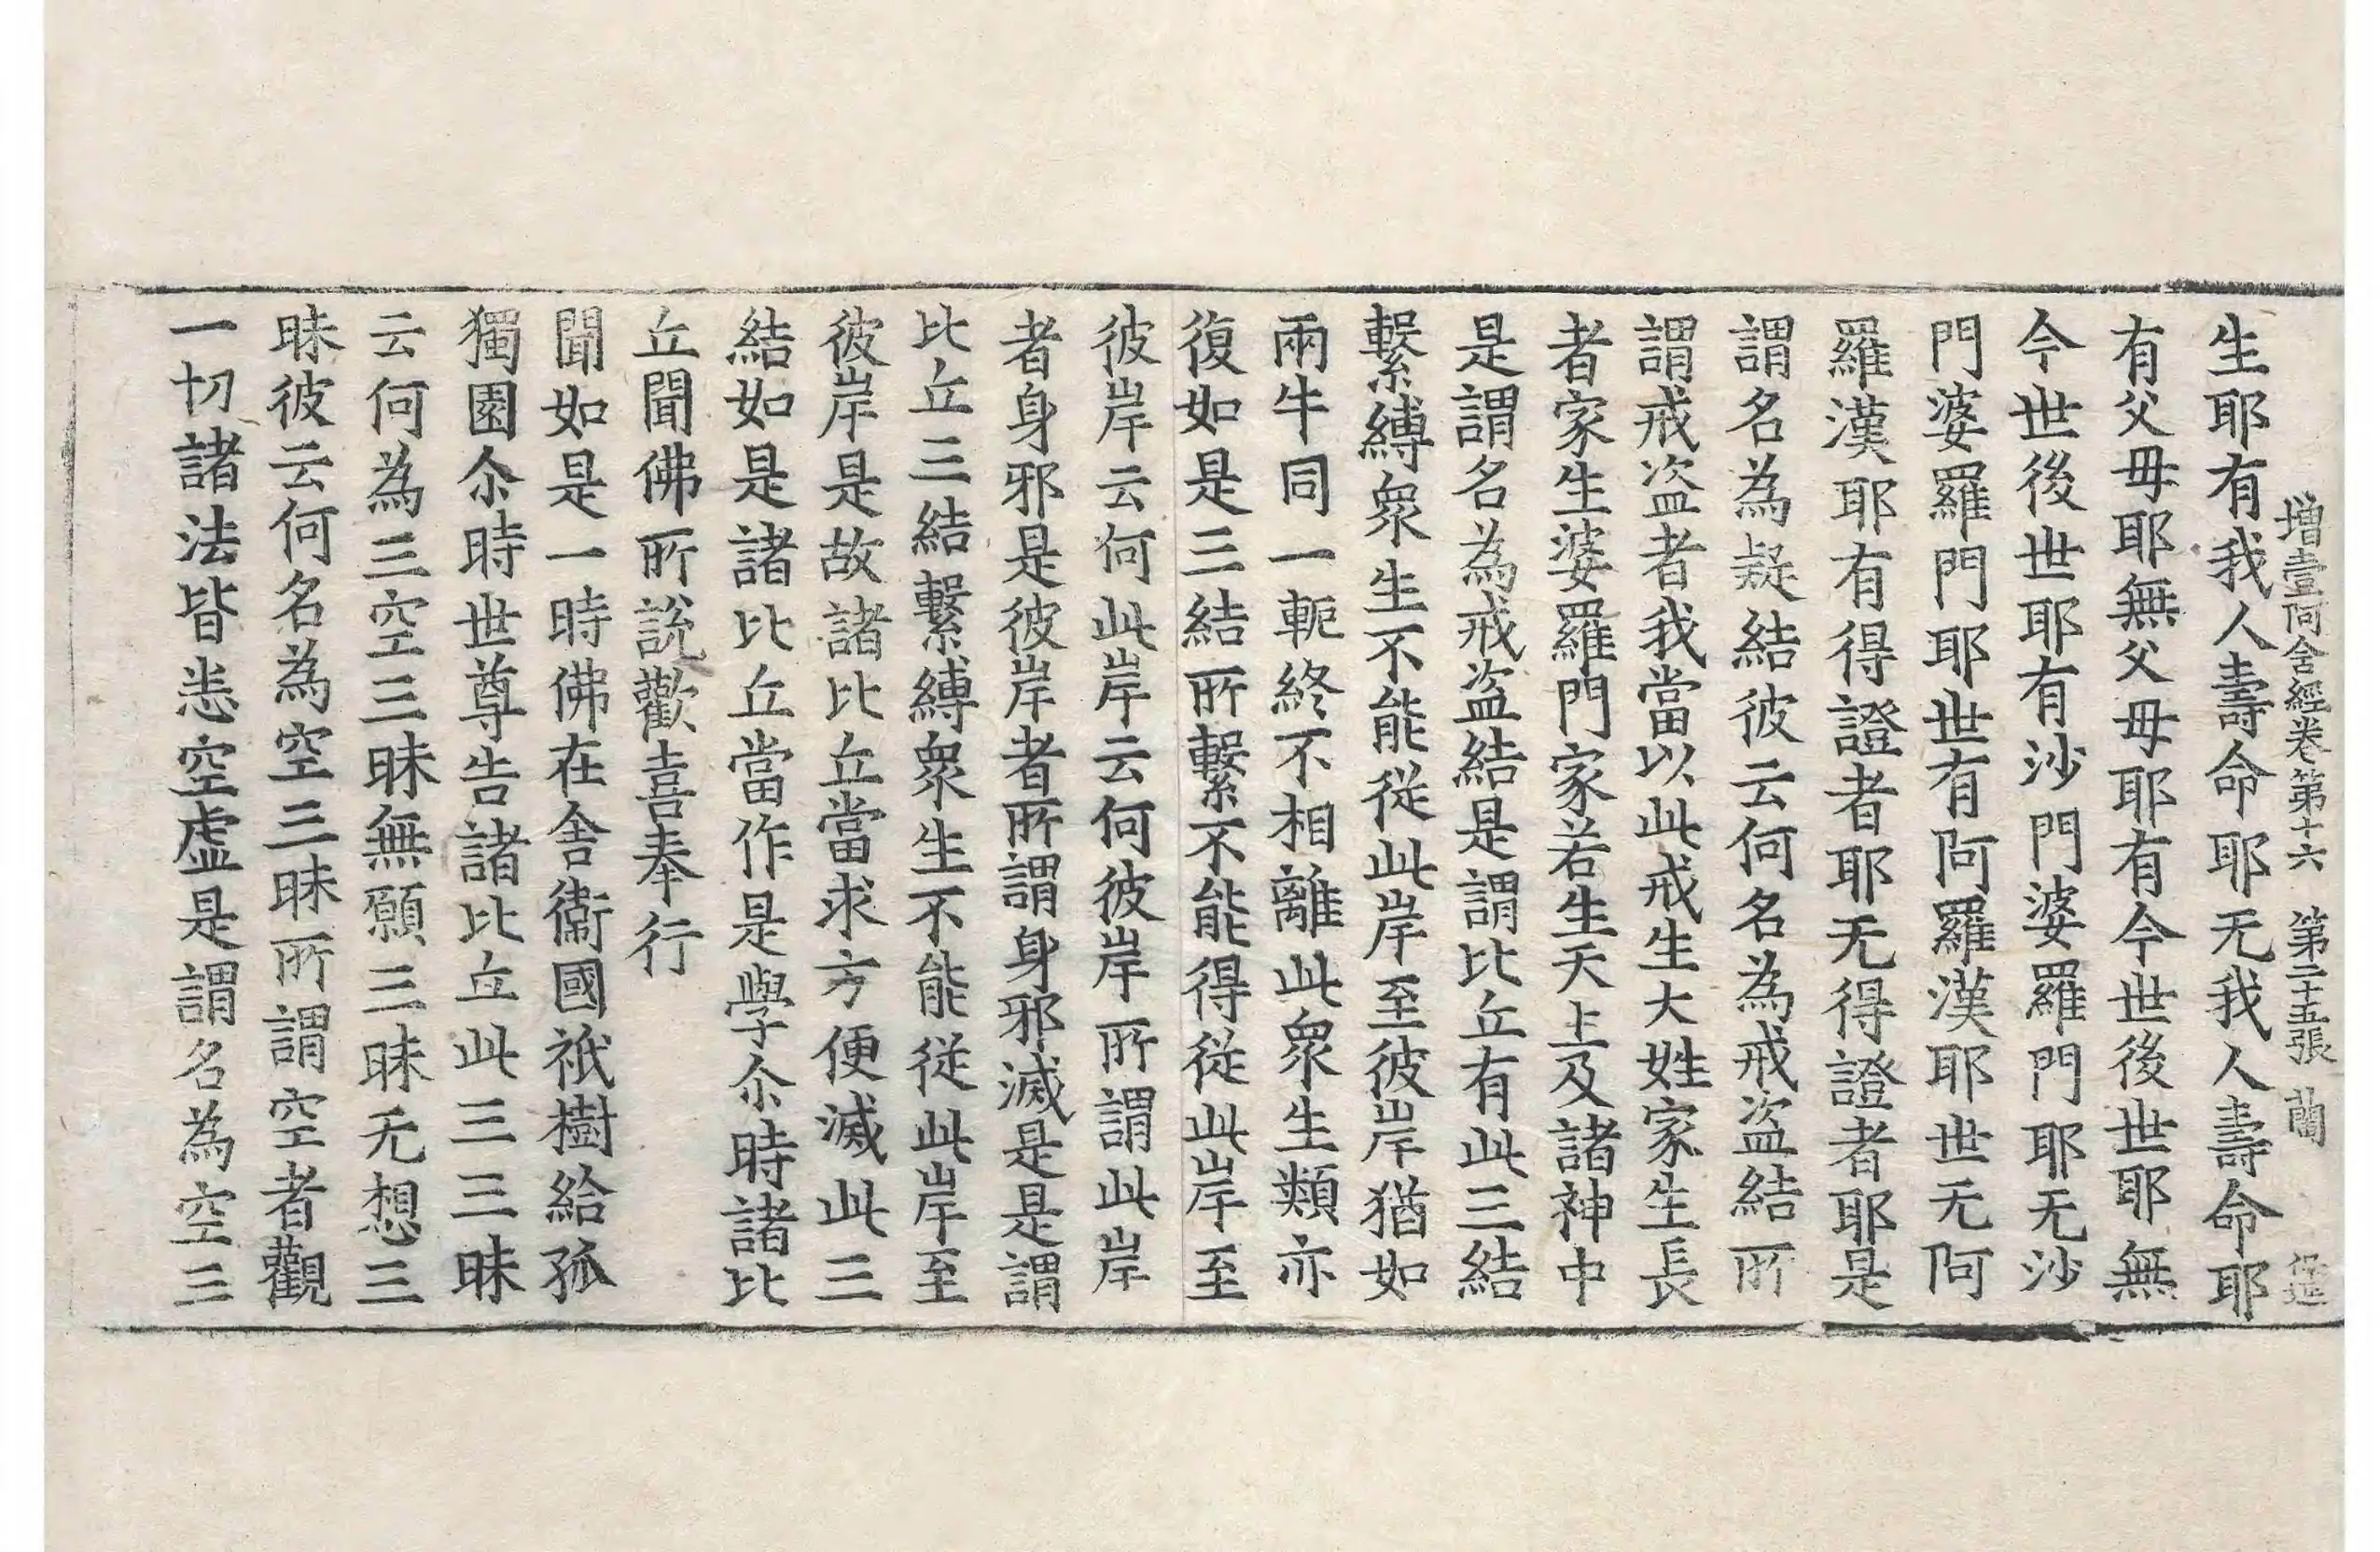 增壹阿含經卷第十六 第二十五張 蘭
生耶有我人壽命耶无我人壽命耶
有父母耶無父母耶有今世後世耶無
今世後世耶有沙門婆羅門耶无沙
門婆羅門耶世有阿羅漢耶世无阿
羅漢耶有得證者耶无得證者耶是
謂名為疑結彼云何名為戒盜結所
謂戒盜者我當以此戒生大姓家生長
者家生婆羅門家若生天上及諸神中
是謂名為戒盜結是謂比丘有此三結
繫縛衆生不能從此岸至彼岸猶如
兩牛同一軛終不相離此衆生類亦
復如是三結所繫不能得從此岸至
彼岸云何此岸云何彼岸所謂此岸
者身邪是彼岸者所謂身邪滅是是謂
比丘三結繫縛衆生不能從此岸至
彼岸是故諸比丘當求方便滅此三
結如是諸比丘當作是學尒時諸比
丘聞佛所說歡喜奉行
聞如是一時佛在舍衞國祇樹給孤
獨園尒時世尊告諸比丘此三三昧
云何為三空三昧無願三昧无想三
昧彼云何名為空三昧所謂空者觀
一切諸法皆悉空虛是謂名為空三